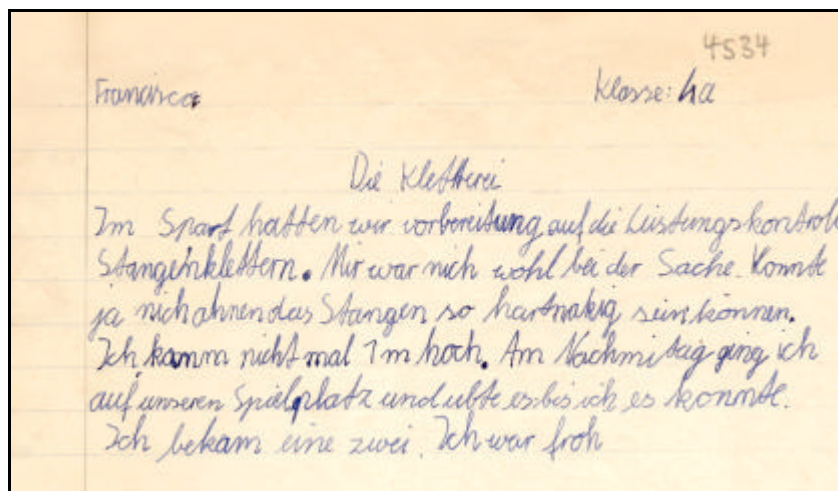 4534
Francisca
Klasse: 4a
Die Kletterei
Im Sport hatten wir vorbereitung auf die Leistungskontroll
Stangenklettern. Mir war nich wohl bei der Sache. Konnte
ja nich ahnen das Stangen so hartnakig sein können.
Ich kamm nicht mal 1m hoch. Am Nachmitag ging ich
auf unseren Spielplatz und ubte es bis ich es konnte.
Ich bekam eine zwei. Ich war froh